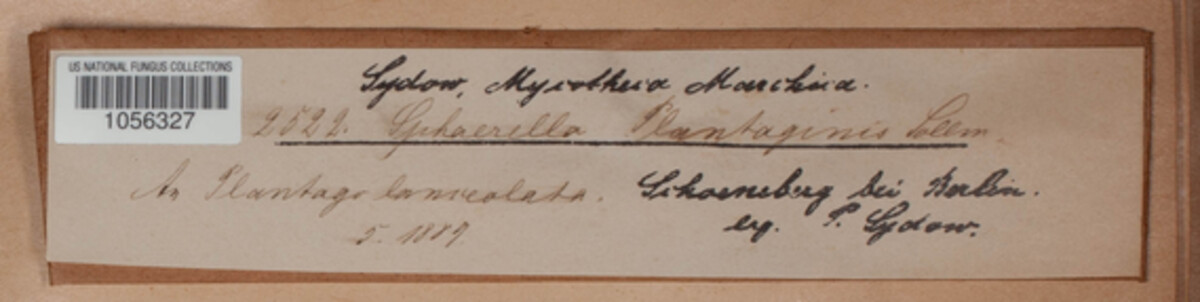 US NATIONAL FUNGUS COLLECTIONS
1056327
Sydow, Mycotheca Marchica.
2522. Sphaerella Plantaginis Sollm.
An Plantago lanceolata. Schoeneberg bei Berlin.
5. 1889. leg. P. Sydow.